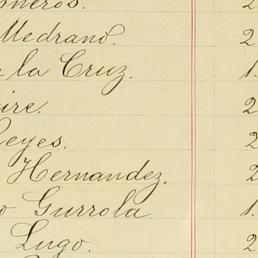 oneros. 2
Medrano. 2
la Cruz. 1.
ire. 2
Reyes. 2
Hernandez. 2
o Gurrola 1.
Lugo. 2